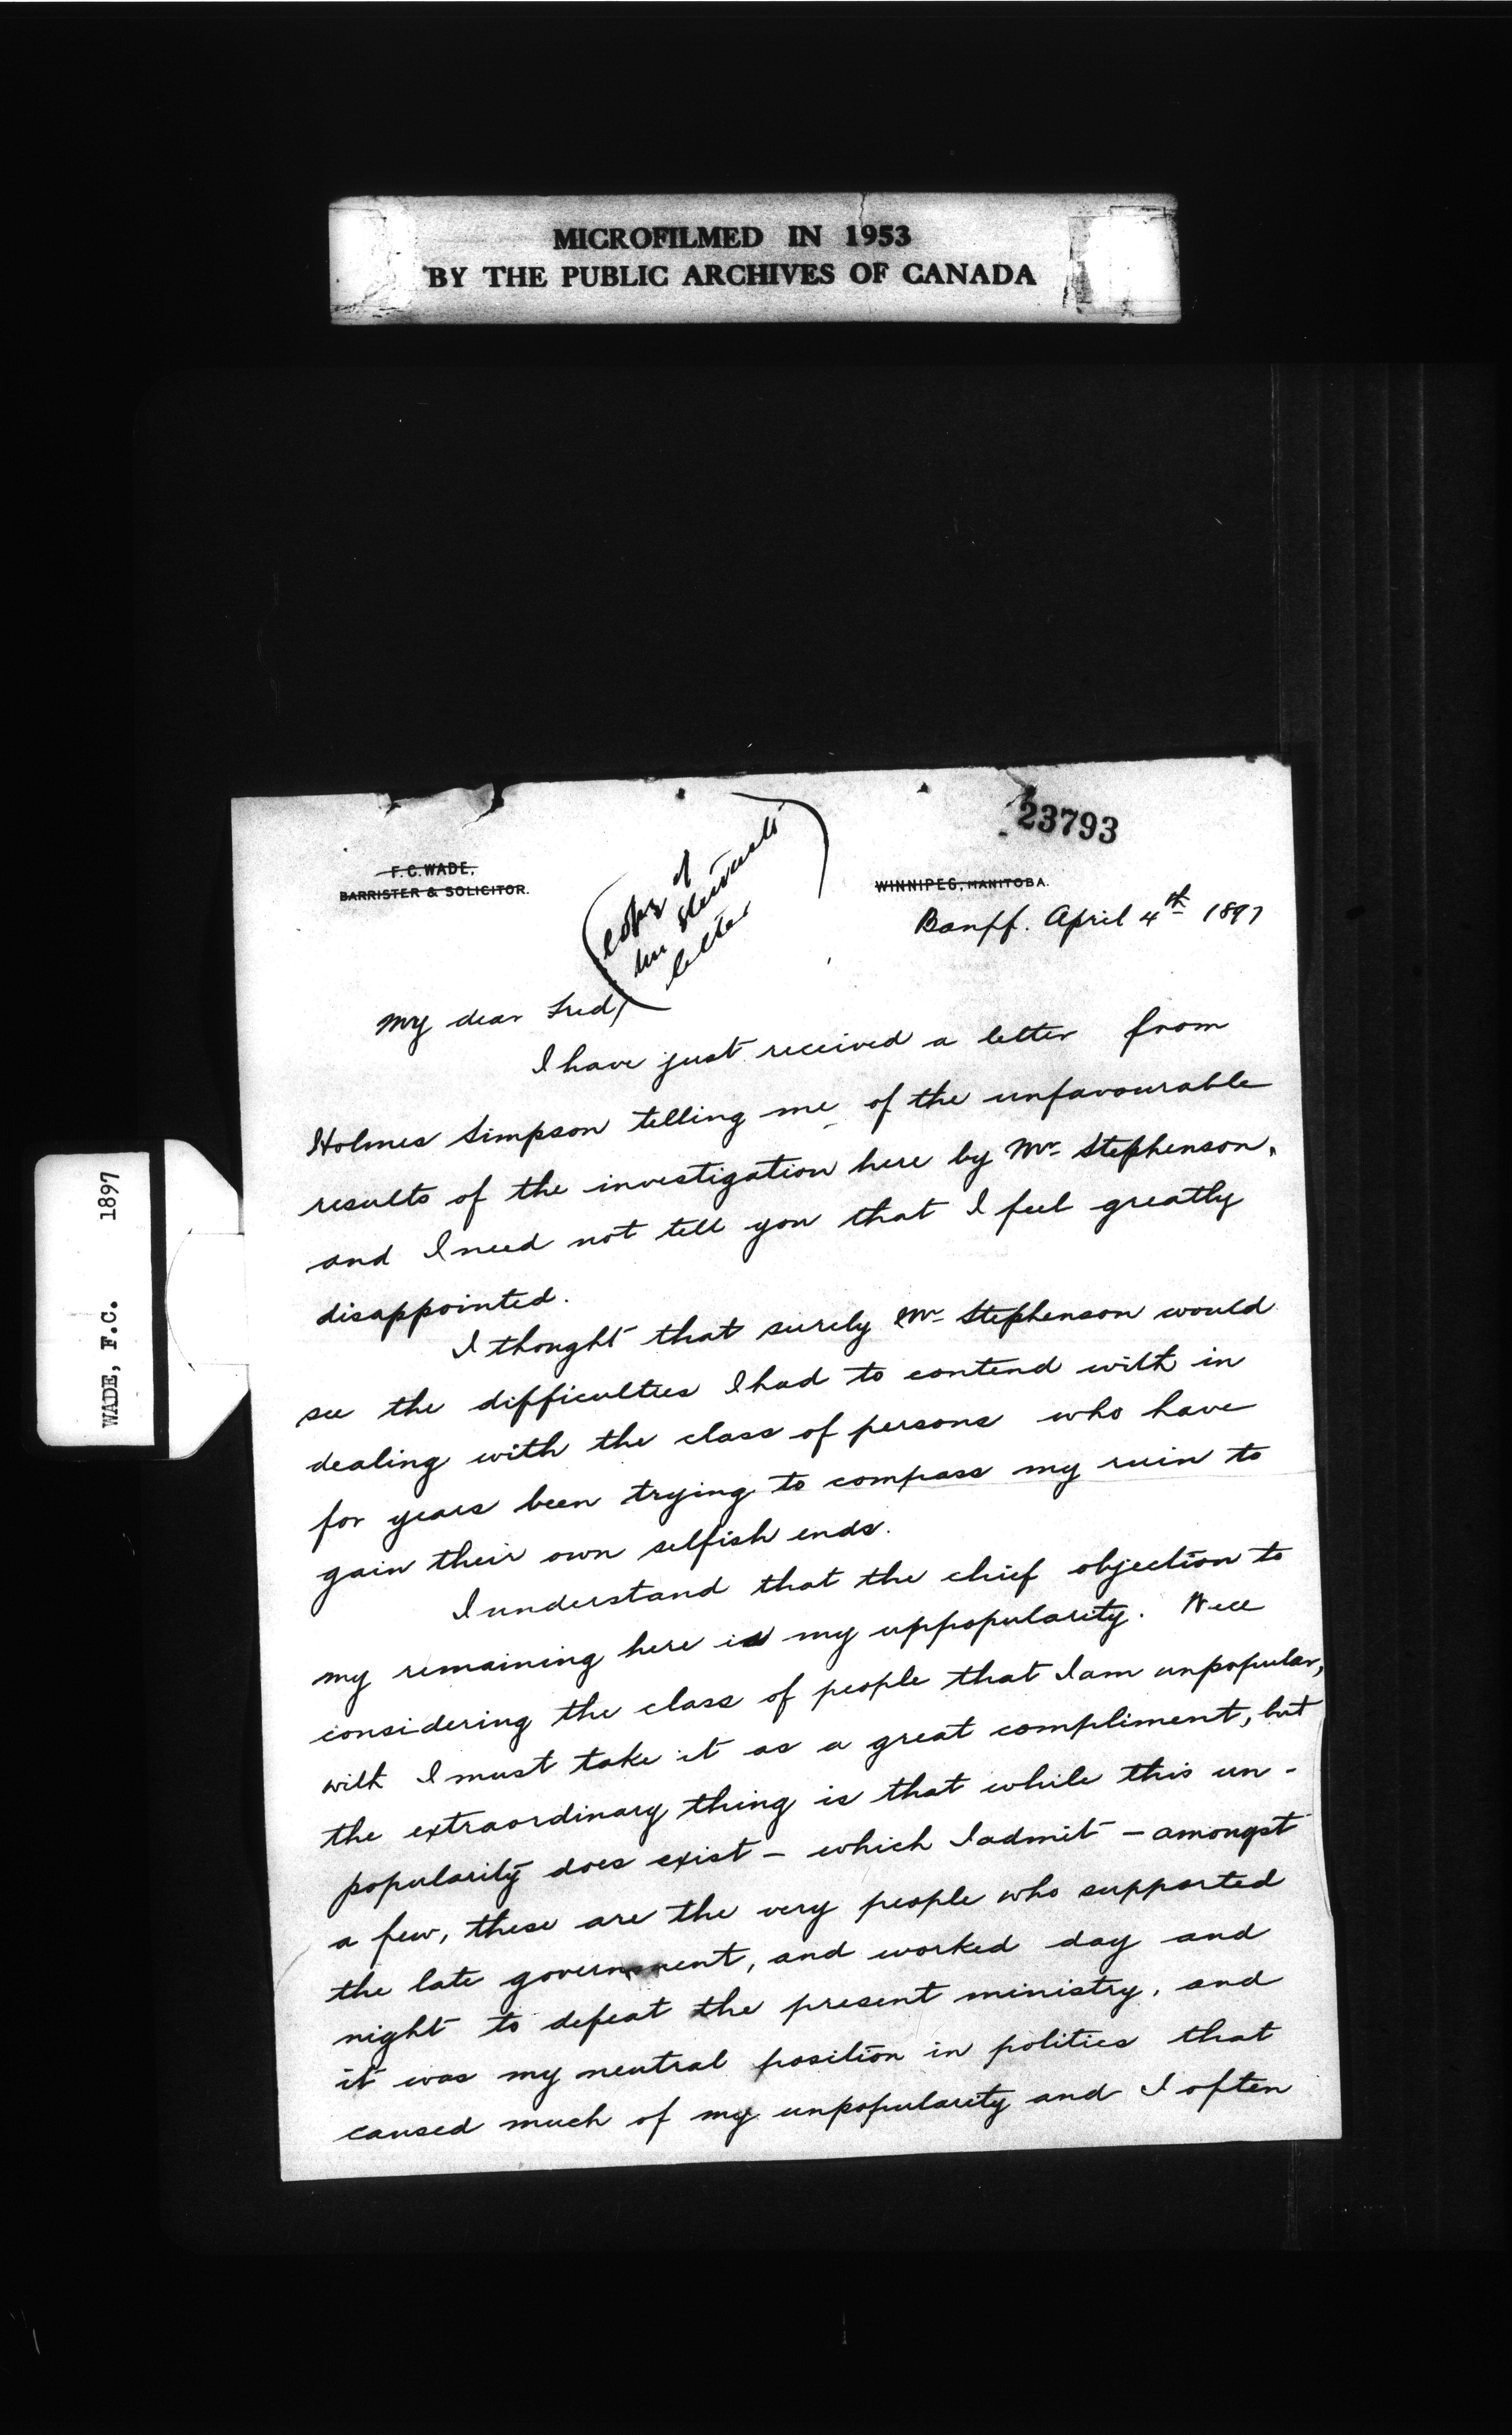 MICROFILMED IN 1953
BY THE PUBLIC ARCHIVES OF CANADA
WADE, F.C. 1897
23793
F.C. WADE,
BARRISTER & SOLICITOR.
WINNIPEG, MANITOBA.
(copy of
letter)
Banff. April 4th 1897
My dear Fred,
I have just received a letter from
Holmes Simpson telling me of the unfavourable
results of the investigation here by Mr Stephenson,
and I need not tell you that I feel greatly
disappointed.
I thought that surely Mr Stephenson would
see the difficulties I had to contend with in
dealing with the class of persons who have
for years been trying to compass my ruin to
gain their own selfish ends.
I understand that the chief objection to
my remaining here is my uppopularity. Well
considering the class of people that I am unpopular,
with I must take it as a great compliment, but
the extraordinary thing is that while this un-
popularity does exist – which I admit – amongst
a few, these are the very people who supported
the late government, and worked day and
night to defeat the present ministry, and
it was my neutral position in politics that
caused much of my unpopularity and I often